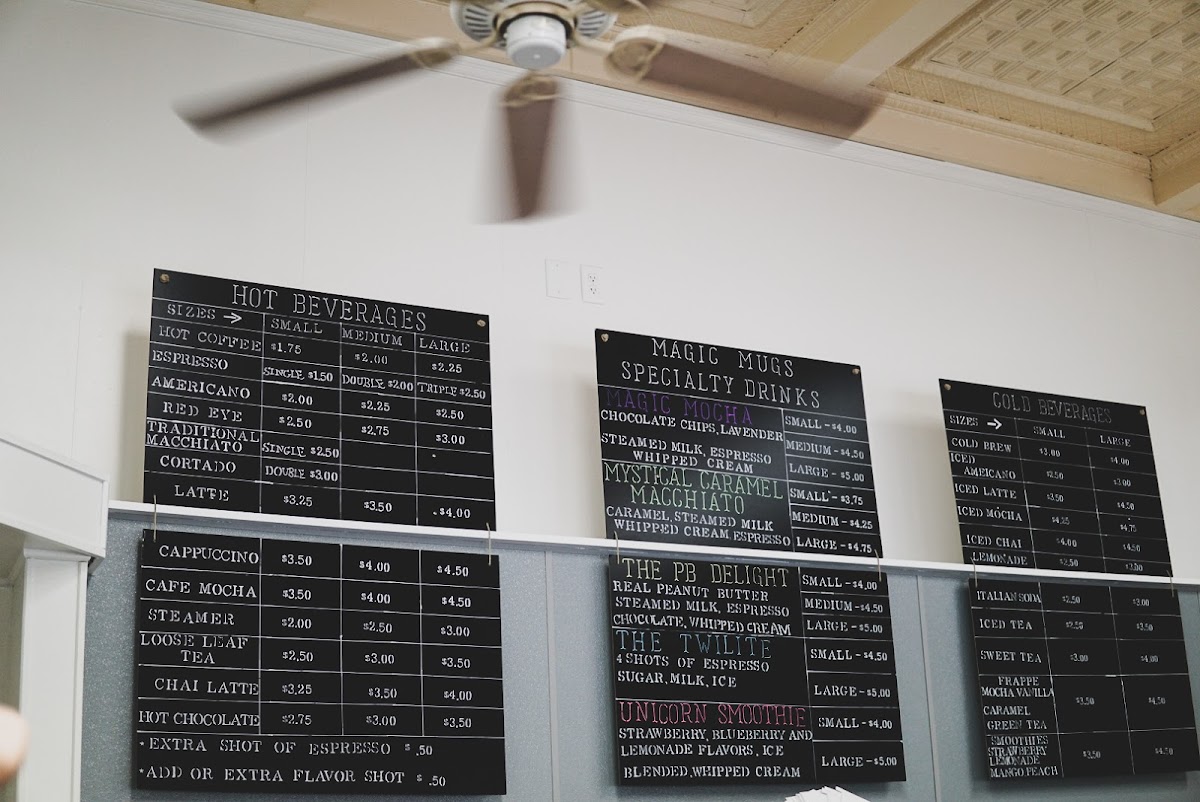 HOT BEVERAGES
SIZES → SMALL MEDIUM LARGE
HOT COFFEE $1.75 $2.00 $2.25
ESPRESSO SINGLE $1.50 DOUBLE $2.00 TRIPLE $2.50
AMERICANO $2.00 $2.25 $2.50
RED EYE $2.50 $2.75 $3.00
TRADITIONAL
MACCHIATO SINGLE $2.50
CORTADO DOUBLE $3.00
LATTE $3.25 $3.50 $4.00
CAPPUCCINO $3.50 $4.00 $4.50
CAFE MOCHA $3.50 $4.00 $4.50
STEAMER $2.00 $2.50 $3.00
LOOSE LEAF
TEA $2.50 $3.00 $3.50
CHAI LATTE $3.25 $3.50 $4.00
HOT CHOCOLATE $2.75 $3.00 $3.50
*EXTRA SHOT OF ESPRESSO $.50
*ADD OR EXTRA FLAVOR SHOT $.50
MAGIC MUGS
SPECIALTY DRINKS
MAGIC MOCHA
CHOCOLATE CHIPS, LAVENDER
STEAMED MILK, ESPRESSO
WHIPPED CREAM
SMALL - $4.00
MEDIUM - $4.50
LARGE - $5.00
MYSTICAL CARAMEL
MACCHIATO
CARAMEL, STEAMED MILK
WHIPPED CREAM, ESPRESSO
SMALL - $3.75
MEDIUM - $4.25
LARGE - $4.75
THE PB DELIGHT
REAL PEANUT BUTTER
STEAMED MILK, ESPRESSO
CHOCOLATE, WHIPPED CREAM
SMALL - $4.00
MEDIUM - $4.50
LARGE - $5.00
THE TWILITE
4 SHOTS OF ESPRESSO
SUGAR, MILK, ICE
SMALL - $4.50
LARGE - $5.00
UNICORN SMOOTHIE
STRAWBERRY, BLUEBERRY AND
LEMONADE FLAVORS, ICE
BLENDED, WHIPPED CREAM
SMALL - $4.00
LARGE - $5.00
COLD BEVERAGES
SIZES → SMALL LARGE
COLD BREW $3.00 $4.00
ICED
AMEICANO $2.50 $3.00
ICED LATTE $3.50 $4.50
ICED MOCHA $4.25 $4.75
ICED CHAI $4.00 $4.50
LEMONADE $2.50 $3.00
ITALIAN SODA $2.50 $3.00
ICED TEA $2.50 $3.50
SWEET TEA $3.00 $4.00
FRAPPE
MOCHA VANILLA
CARAMEL
GREEN TEA
$3.50 $4.50
SMOOTHIES
STRAWBERRY
LEMONADE
MANGO, PEACH
$3.50 $4.50